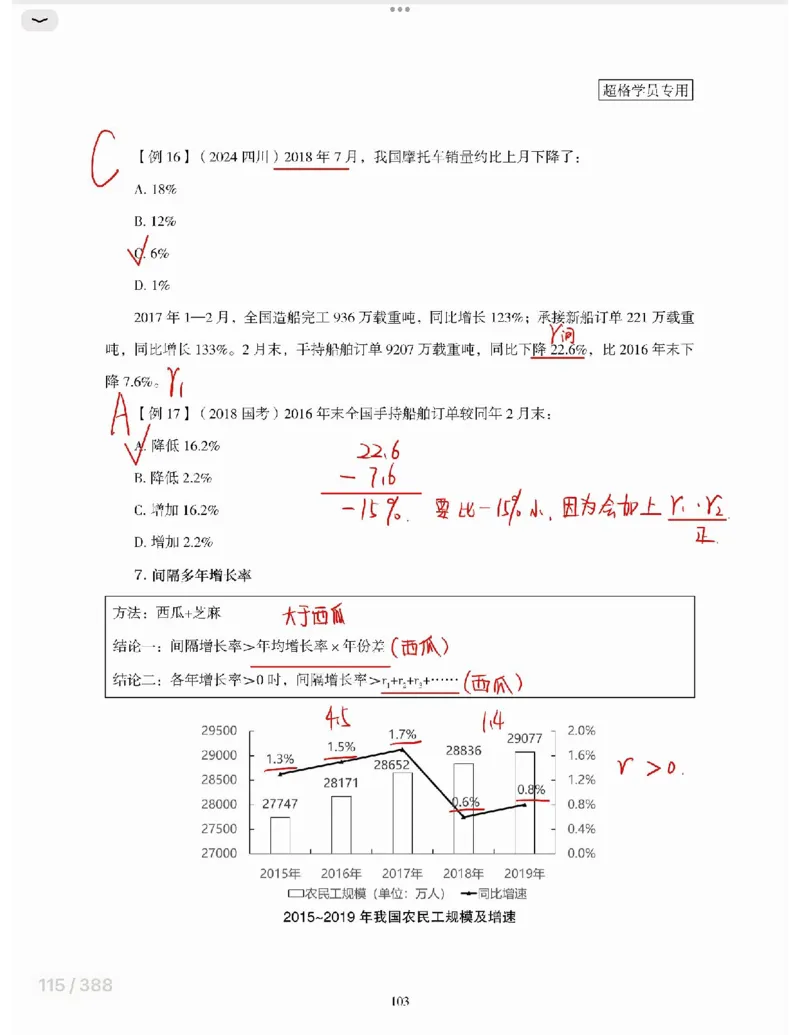 超格学员专用
C
【例 16】（2024 四川）2018 年 7 月，我国摩托车销量约比上月下降了：
A. 18%
B. 12%
C. 6%
D. 1%
2017 年 1—2 月，全国造船完工 936 万载重吨，同比增长 123%；承接新船订单 221 万载重
r间
吨，同比增长 133%。2 月末，手持船舶订单 9207 万载重吨，同比下降 22.6%，比 2016 年末下
降 7.6%。 r₁
A
【例 17】（2018 国考）2016 年末全国手持船舶订单较同年 2 月末：
A. 降低 16.2%
22.6
B. 降低 2.2%
- 7.6
C. 增加 16.2%
-15%. 要比-15%小，因为会加上 r₁·r₂
D. 增加 2.2%
正
7. 间隔多年增长率
方法：西瓜+芝麻 大于西瓜
结论一：间隔增长率＞年均增长率×年份差（西瓜）
结论二：各年增长率＞0 时，间隔增长率＞r₁+r₂+r₃+……（西瓜）
4.5 1.4
29500
29000
28500
28000
27500
27000
2.0%
1.6%
1.2%
0.8%
0.4%
0.0%
1.3%
1.5%
1.7%
0.6%
0.8%
27747
28171
28652
28836
29077
r >0.
2015年 2016年 2017年 2018年 2019年
农民工规模（单位：万人） 同比增速
2015~2019 年我国农民工规模及增速
115 / 388
103